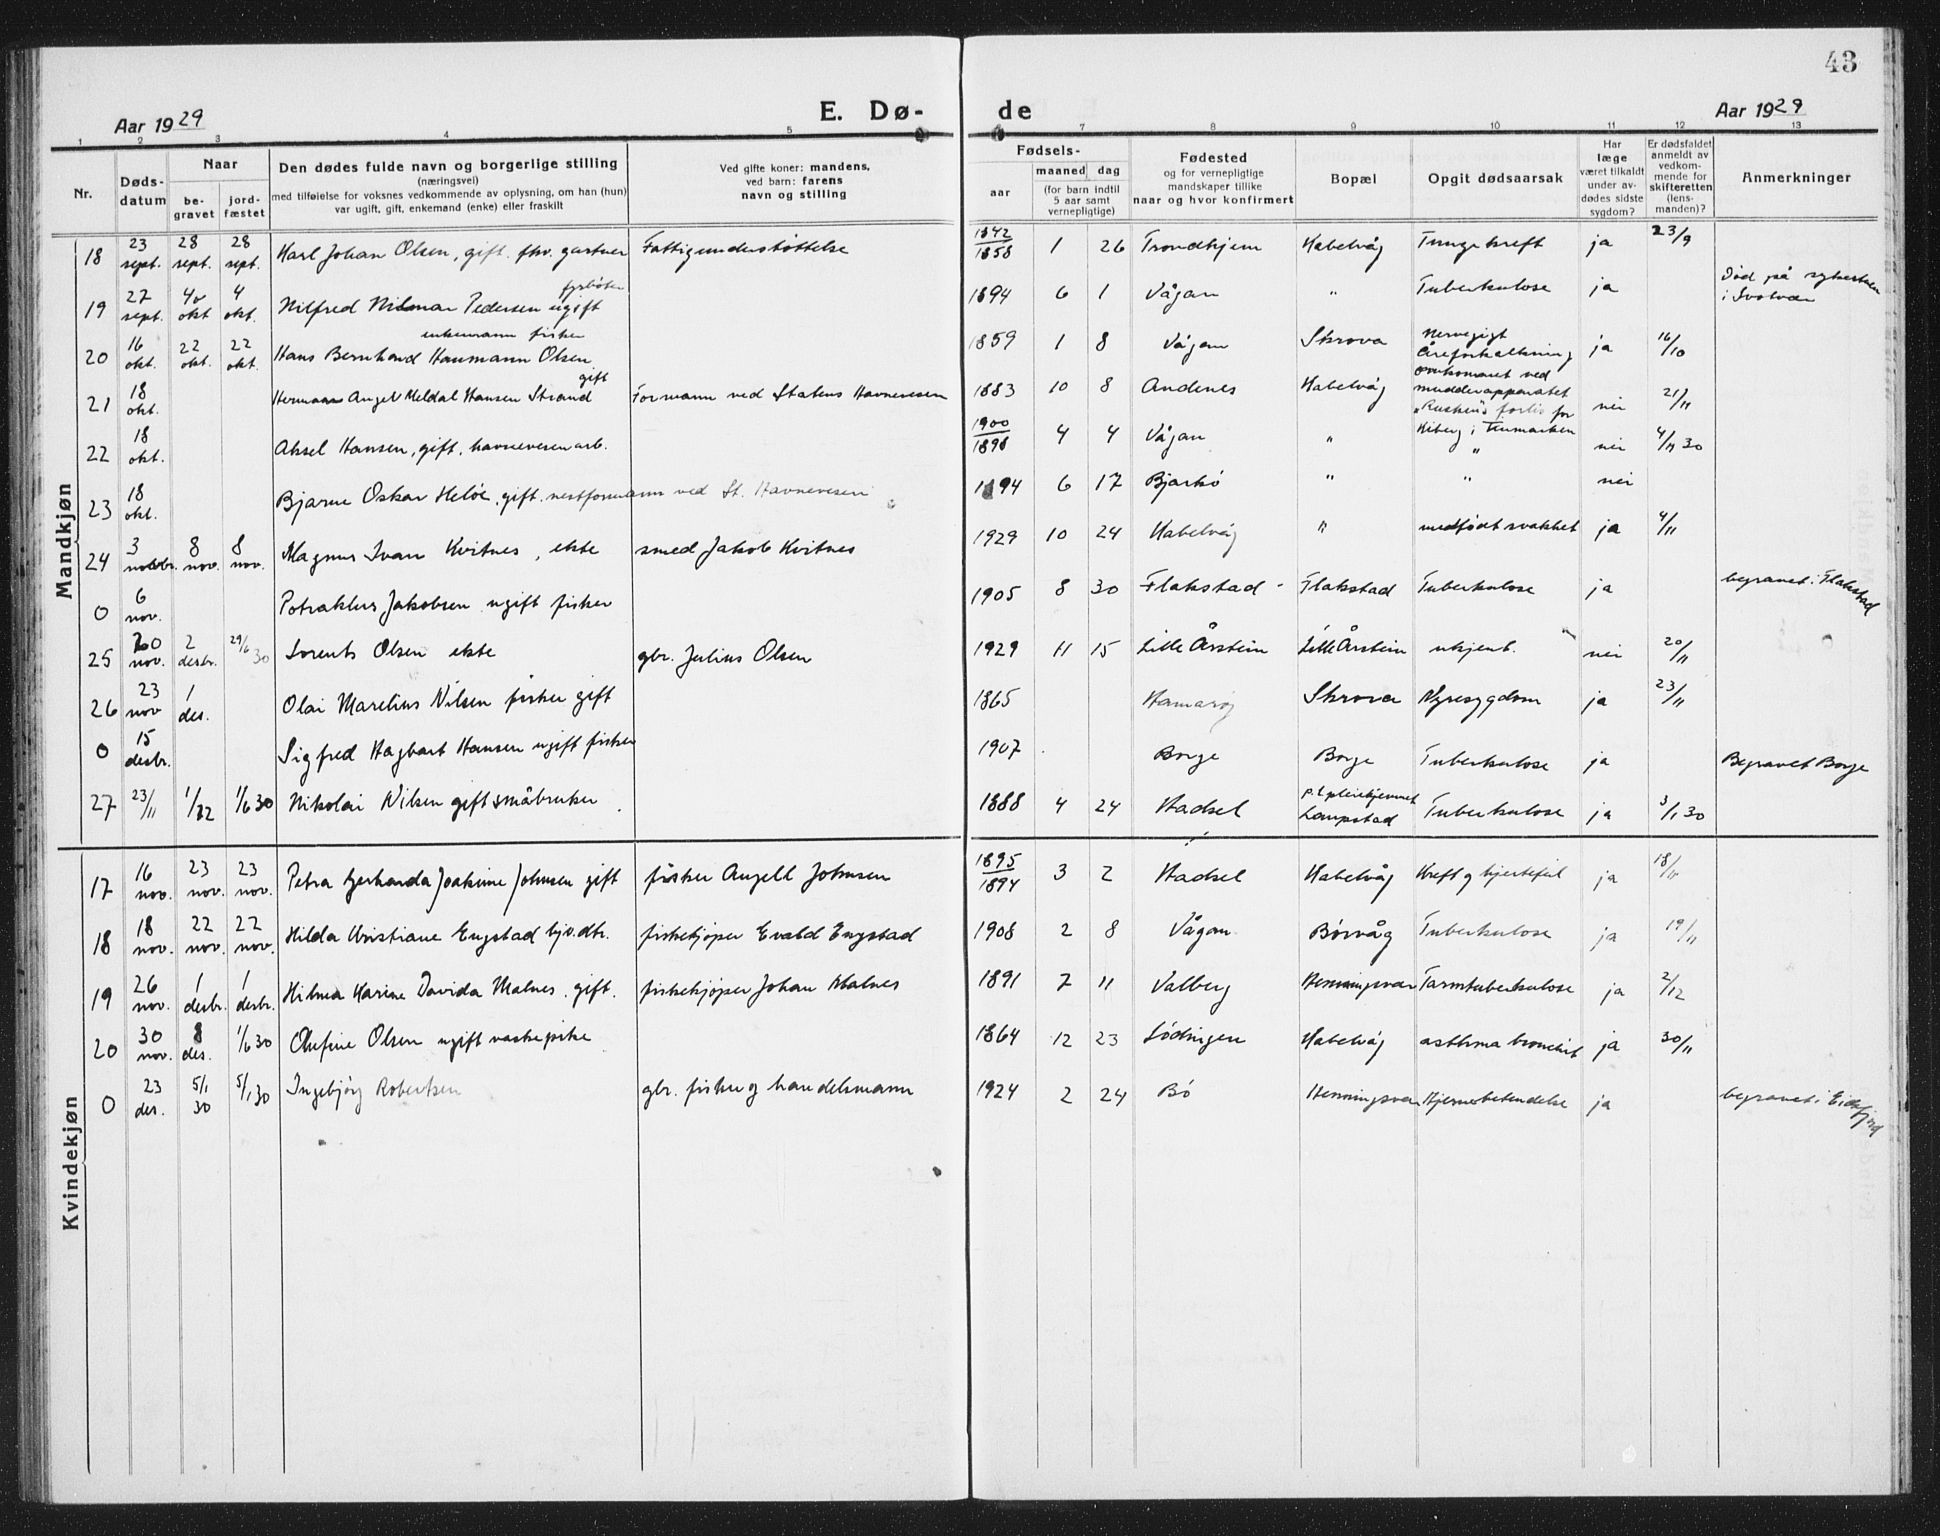 43
Aar 1929
E. Dø-
de
Aar 1929
1 2 3 4 5 6 7 8 9 10 11 12 13
Nr.
Døds-
datum
Naar
be-
gravet
jord-
fæstet
Den dødes fulde navn og borgerlige stilling
(næringsvei)
med tilføielse for voksnes vedkommende av oplysning, om han (hun)
var ugift, gift, enkemand (enke) eller fraskilt
Ved gifte koner: mandens,
ved barn: farens
navn og stilling
Fødsels-
aar
maaned dag
(for barn indtil
5 aar samt
vernepligtige)
Fødested
og for vernepligtige
mandskaper tillike
naar og hvor konfirmert
Bopæl
Opgit dødsaarsak
Har
læge
været tilkaldt
under av-
dødes sidste
sygdom?
Er dødsfaldet
anmeldt av
vedkom-
mende for
skifteretten
(lens-
manden)?
Anmerkninger
Mandkjøn
18 23 sept. 28 sept. 28 sept. Karl Johan Olsen, gift. fhv. gartner Fattigunderstøttelse 1842 1858 1 26 Trondhjem Kabelvåg Tungekreft ja 23/9
19 27 sept. 4 okt 4 okt. Nilfred Nilmar Pedersen ugift fyrbøter 1894 6 1 Vågan " Tuberkulose ja Død på sykestuen i Svolvær
20 16 okt. 22 okt. 22 okt. Hans Bernhard Hanmann Olsen enkemann fisker 1859 1 8 Vågan Skrova Nervegigt åreforkalkning ja 16/10
21 18 okt. Herman Angel Meldal Hansen Strand gift Formann ved Statens Havnevesen 1883 10 8 Andenes Kabelvåg omkommet ved mudderapparatet "Rusken"s forlis for Kiberg i Finmarken nei 21/11
22 18 okt. Aksel Hansen, gift, havnevesenarb. 1900 1898 4 4 Vågan " " nei 4/11 30
23 18 okt. Bjarne Oskar Heløe, gift. nestformann ved St. Havnevesen 1894 6 17 Bjarkø " " nei
24 3 novbr. 8 nov. 8 nov. Magnus Ivan Kvitnes, ekte smed Jakob Kvitnes 1929 10 24 Kabelvåg " medfødt svakhet ja 4/11
0 6 nov. Petraklus Jakobsen ugift fisker 1905 8 30 Flakstad Flakstad Tuberkulose ja begravet i Flakstad
25 20 nov. 2 desbr. 29/6 30 Lorents Olsen ekte gbr. Julius Olsen 1929 11 15 Lille Årstein Lille Årstein ukjent. nei 20/11
26 23 nov 1 des. Olai Marelius Nilsen fisker gift 1865 Hamarøy Skrova Nyresygdom ja 23/11
0 15 desbr. Sigfred Hagbart Hansen ugift fisker 1907 Borge Borge Tuberkulose ja Begravet Borge
27 23/11 1/12 1/6 30 Nikolai Nilsen gift småbruker 1888 4 24 Hadsel p.t. pleiehjemmet Lampstad Tuberkulose ja 3/1 30
Kvindekjøn
17 16 nov. 23 nov. 23 nov. Petra Gerharda Joakime Johnsen gift fisker Angell Johnsen 1895 1894 3 2 Hadsel Kabelvåg Kreft og hjertefeil ja 18/11
18 18 nov. 22 nov. 22 nov. Hilda Kristiane Engstad hjv. dtr. fiskekjøper Evald Engstad 1908 2 8 Vågan Børvåg Tuberkulose ja 19/11
19 26 nov. 1 desbr. 1 desbr. Hilma Karine Davida Malnes. gift. fiskekjøper Johan Malnes 1891 7 11 Valberg Henningsvær Tarmtuberkulose ja 2/12
20 30 nov. 8 des. 1/6 30 Olufine Olsen ugift vaskepike 1864 12 23 Lødingen Kabelvåg asthma bronchit ja 30/11
0 23 des. 5/1 30 5/1 30 Ingebjørg Robertsen gbr. fisker og handelsmann 1924 2 24 Bø Henningsvær Hjernebetendelse ja begravet i Eidsfjord